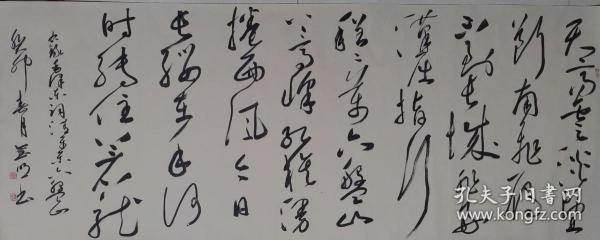 天高雲淡望
断南飞雁
不到長城非好
漢屈指行
程二万六盘山
上高峰红旗漫
捲西风今日
長缨在手何
时缚住苍龙
毛泽东词清平乐六盘山
癸卯春月书
孔夫子旧书网
www.kongfz.com